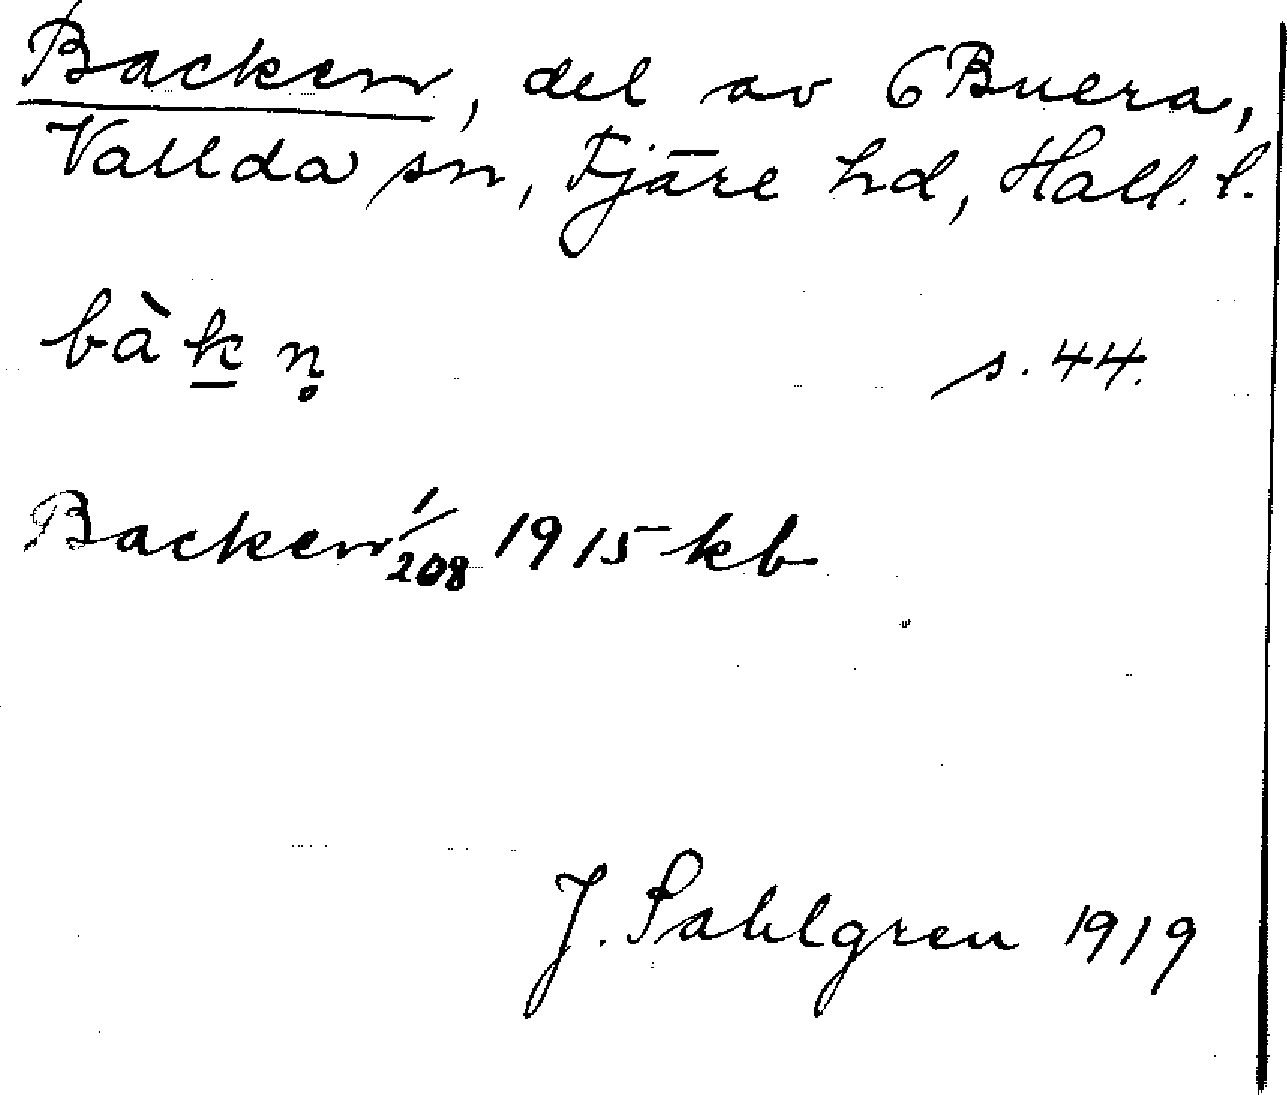 Backen, del av 6 Buera,
Vallda sn, Fjäre hd, Hall. l.
bàk̲ n̥ s. 44.
Backen 1/208 1915 kb
J. Sahlgren 1919